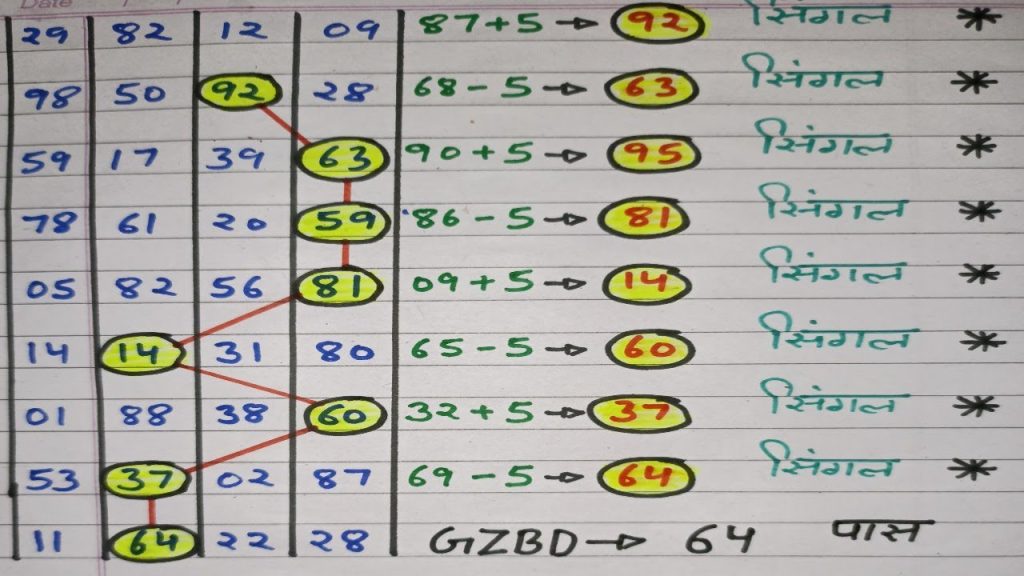 Date
29 82 12 09 87+5→ 92 सिंगल *
98 50 92 28 68-5→ 63 सिंगल *
59 17 39 63 90+5→ 95 सिंगल *
78 61 20 59 86-5→ 81 सिंगल *
05 82 56 81 09+5→ 14 सिंगल *
14 14 31 80 65-5→ 60 सिंगल *
01 88 38 60 32+5→ 37 सिंगल *
53 37 02 87 69-5→ 64 सिंगल *
11 64 22 28 GZBD→ 64 पास